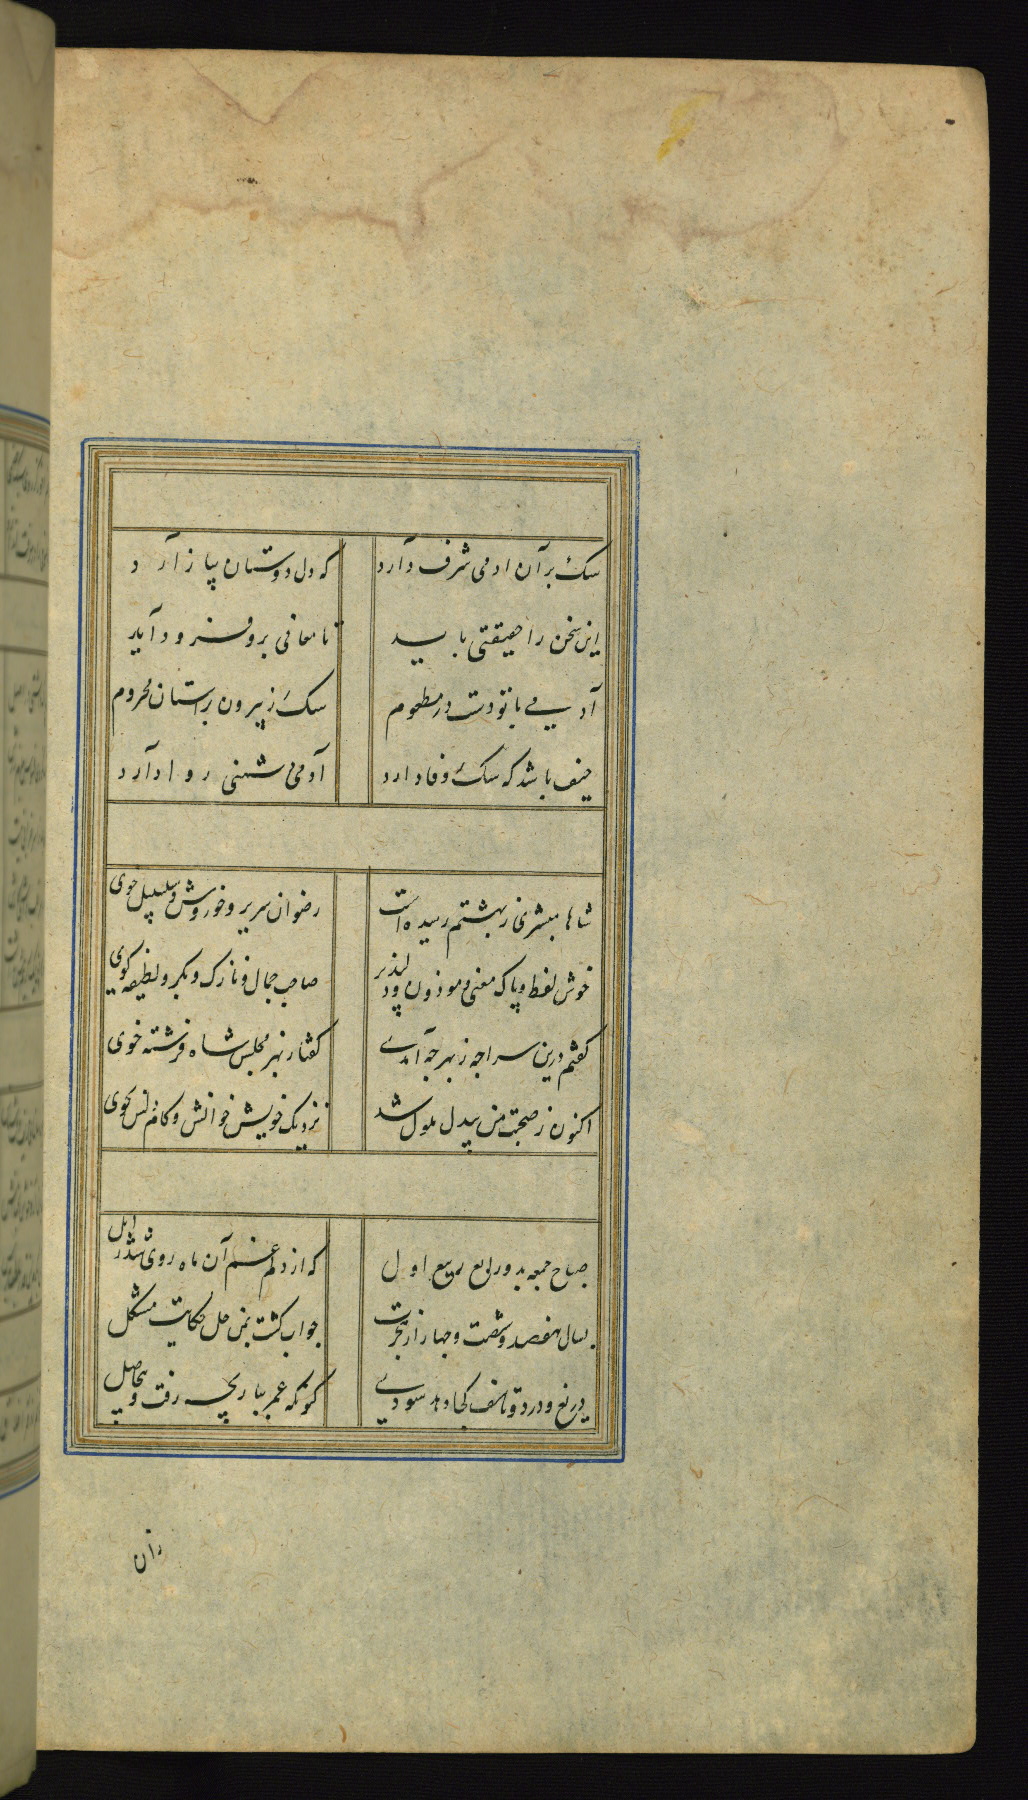 سک بر آن ادمی شرف دارد که دل دوستان بیازارد
این سخن را حقیقتی باید تا معانی برو فرود آید
آدمی با تو دست در مطعوم سک ز بیرون راستان محروم
حیف باشد که سک وفا دارد آدمی دشمنی روا دارد
شاها مبشری ز بهشتم رسیده است رضوان سریر و حوروش و سلسبیل جوی
خوش لفظ و پاک معنی و موزون و دلپذیر صاحب جمال و نازک و بکر و لطیفه کوی
کفتم درین سراچه ز بهر چه آمدی کفتا ز بهر مجلس شاه فرشته خوی
اکنون ز صحبت من بیدل ملول شد نزدیک خویش خوانش و کام دلش بجوی
صباح جمعه بد و رابع ربیع اول که از دلم غم آن ماه روی شد زایل
بسال هفصد و شصت و چهار از هجرت جواب کشت بمن حل حکایت مشکل
دریغ و درد و تاسف کجا دهد سودی کنونکه عمر ببازیچه رفت و بیحاصل
زان